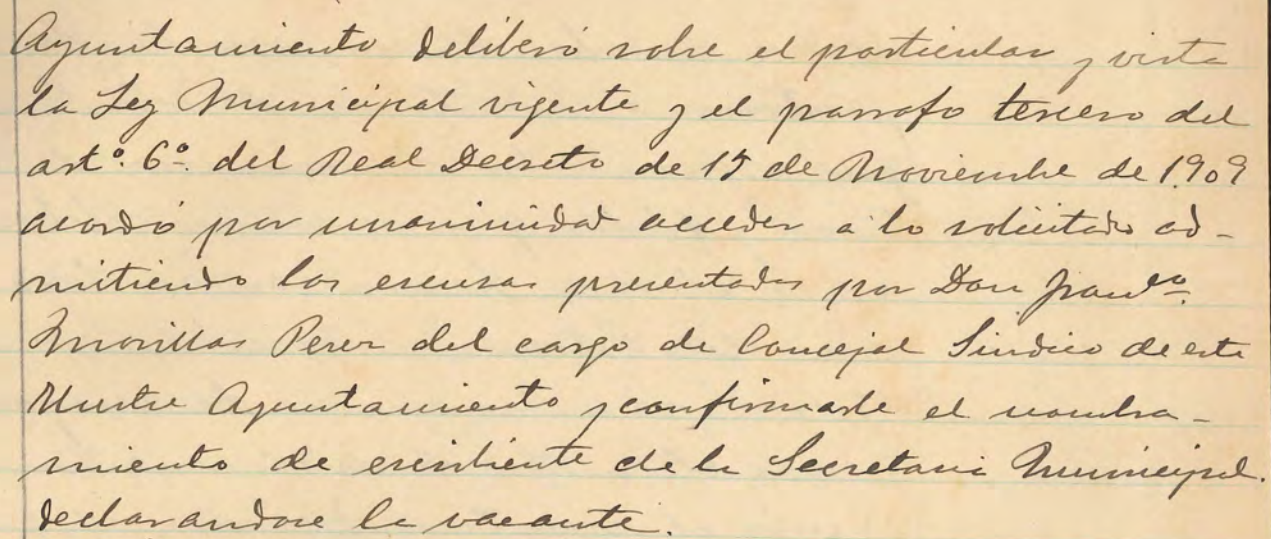 Ayuntamiento deliberó sobre el particular y vista
la Ley Municipal vigente y el parrafo tercero del
artº. 6º. del Real Decreto de 15 de Noviembre de 1909
acordó por unanimidad acceder a lo solicitado ad-
mitiendo las escusas presentadas por Don Franco.
Morillas Perez del cargo de Concejal Sindico de este
Ilustre Ayuntamiento y confirmarle el nombra-
miento de escribiente de la Secretaria Municipal.
declarandose la vacante.